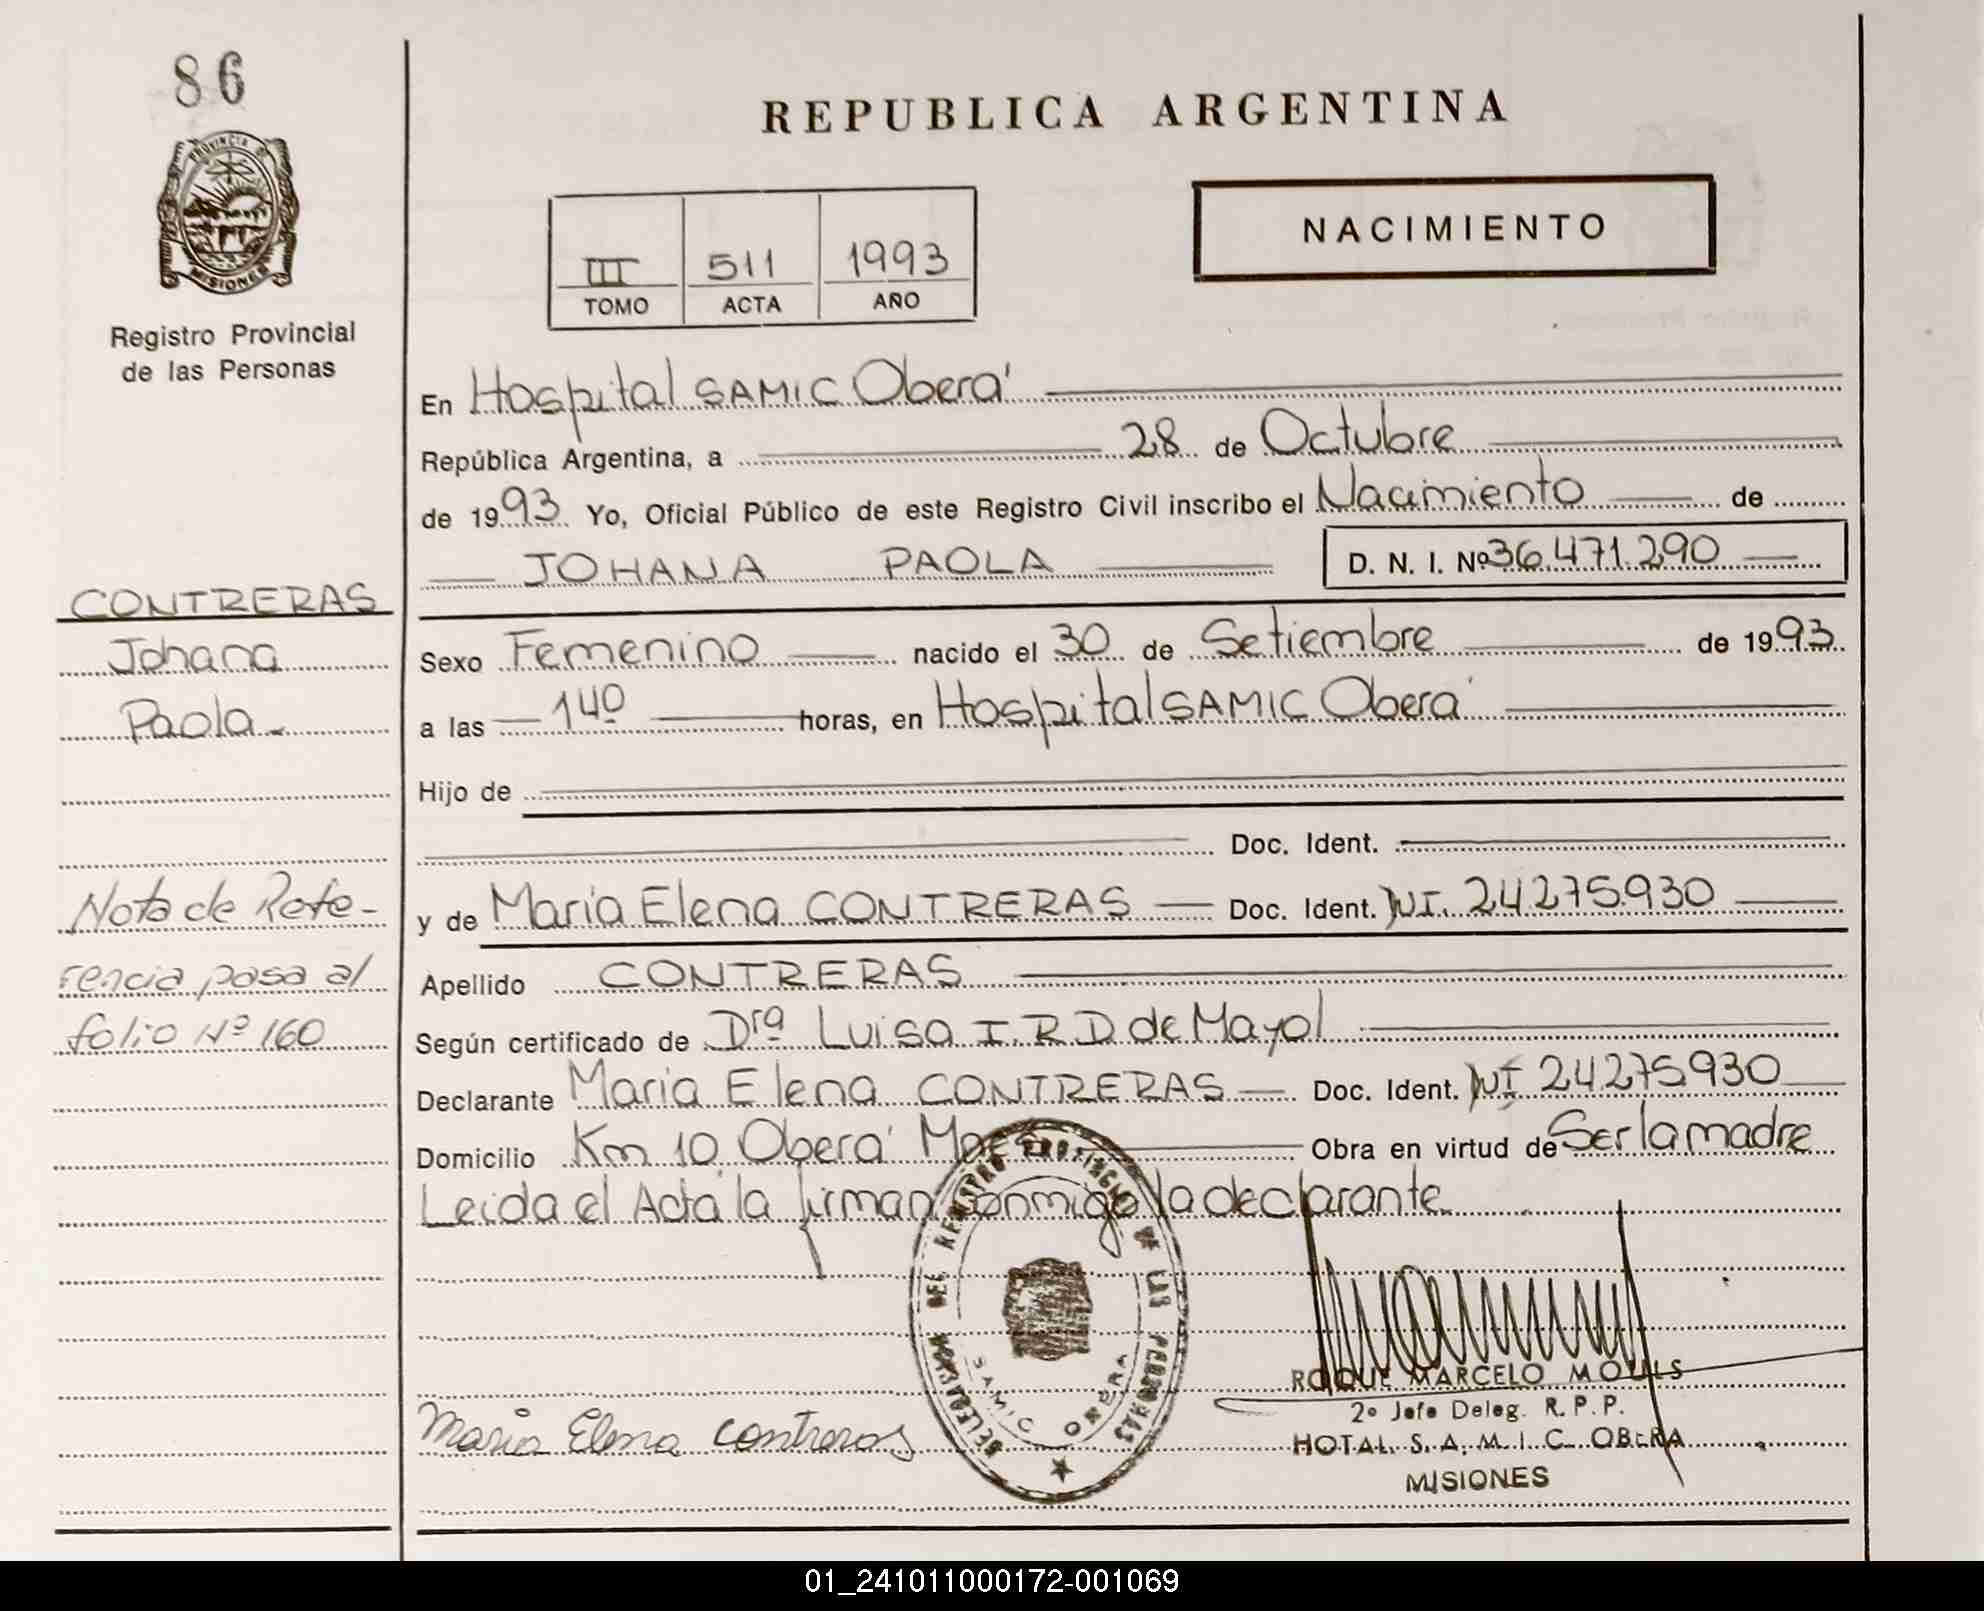 86
PROVINCIA D
MISIONES
Registro Provincial
de las Personas
REPUBLICA ARGENTINA
NACIMIENTO
III 511 1993
TOMO ACTA AÑO
En Hospital SAMIC Oberá
República Argentina, a 28 de Octubre
de 1993 Yo, Oficial Público de este Registro Civil inscribo el Nacimiento de
JOHANA PAOLA D. N. I. Nº 36.471.290
CONTRERAS
Johana
Paola
Sexo Femenino nacido el 30 de Setiembre de 1993
a las 14º horas, en Hospital SAMIC Oberá
Hijo de
Doc. Ident.
Nota de Refe-
rencia pasa al
folio Nº 160
y de Maria Elena CONTRERAS Doc. Ident. 24275930
Apellido CONTRERAS
Según certificado de Drª Luisa I. R. D. de Mayol
Declarante Maria Elena CONTRERAS Doc. Ident. 24275930
Domicilio Km 10 Oberá Obra en virtud de Ser la madre
Leida el Acta la firman conmigo la declarante
DEL REGISTRO PROVINCIAL DE LAS PERSONAS
SAMIC OBERA
Maria Elena Contreras
ROQUE MARCELO
2º Jefe Deleg. R. P. P.
HOTAL. S. A. M. I. C. OBERA
MISIONES
01_241011000172-001069